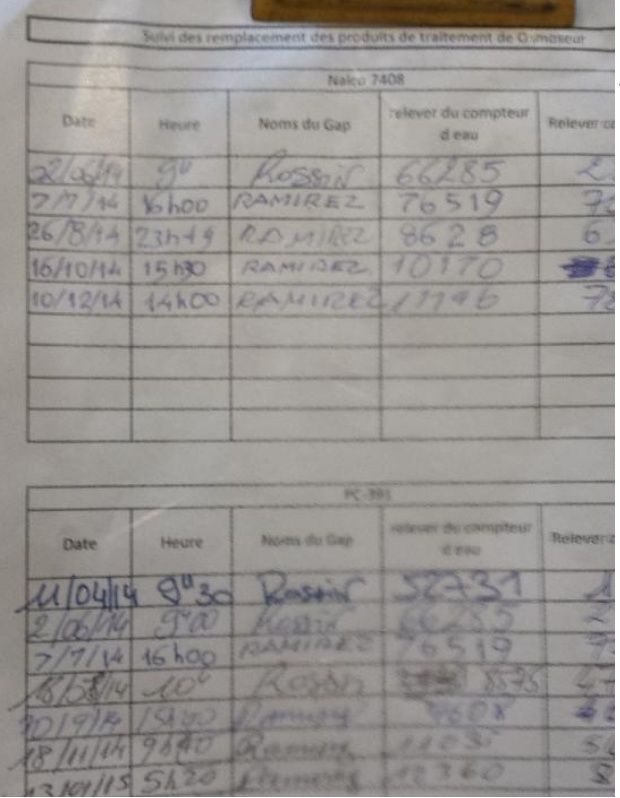 Suivi des remplacement des produits de traitement de Osmoseur
Nalco 7408
Date Heure Noms du Gap relever du compteur d eau Relever
02/06/14 9H Rossin 66285 2
7/7/14 16h00 RAMIREZ 76519 7
26/8/14 23h49 RAMIREZ 8628 6
16/10/14 15h30 RAMIREZ 10170
10/12/14 14h00 RAMIREZ 11796 78
PC-391
Date Heure Noms du Gap relever du compteur d eau Relever
11/04/14 9H30 Rossin 52731 1
2/06/14 9H00 Rossin 66285 2
7/7/14 16h00 RAMIREZ 76519 7
14 10H Rossin 8575 47
9/14
18/11/14 9h40
13/01/15 5h20 12360 8